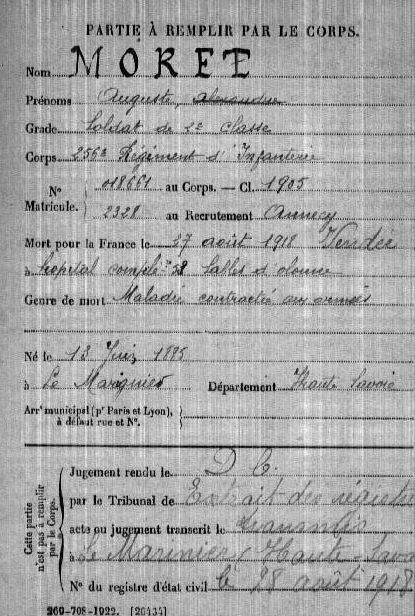 PARTIE À REMPLIR PAR LE CORPS.
Nom MORET
Prénoms Auguste, Alexandre
Grade Soldat de 2e classe
Corps 256e Régiment d'Infanterie
N° 018661 au Corps. — Cl. 1905
Matricule. 2328 au Recrutement Annecy
Mort pour la France le 27 août 1918 Vendée
à hopital complre 28 Sables d'olonne
Genre de mort Maladie contractée aux armées
Né le 13 Juin 1885
à Le Marignier Département Haute Savoie
Arrt municipal (pr Paris et Lyon),
à défaut rue et N°.
Cette partie
n'est pas à remplir
par le Corps.
Jugement rendu le D C.
par le Tribunal de Extrait des
acte ou jugement transcrit le transmis
à Le Marinier (Haute-Savo
N° du registre d'état civil le 28 août 1918
269-708-1922. [26434]